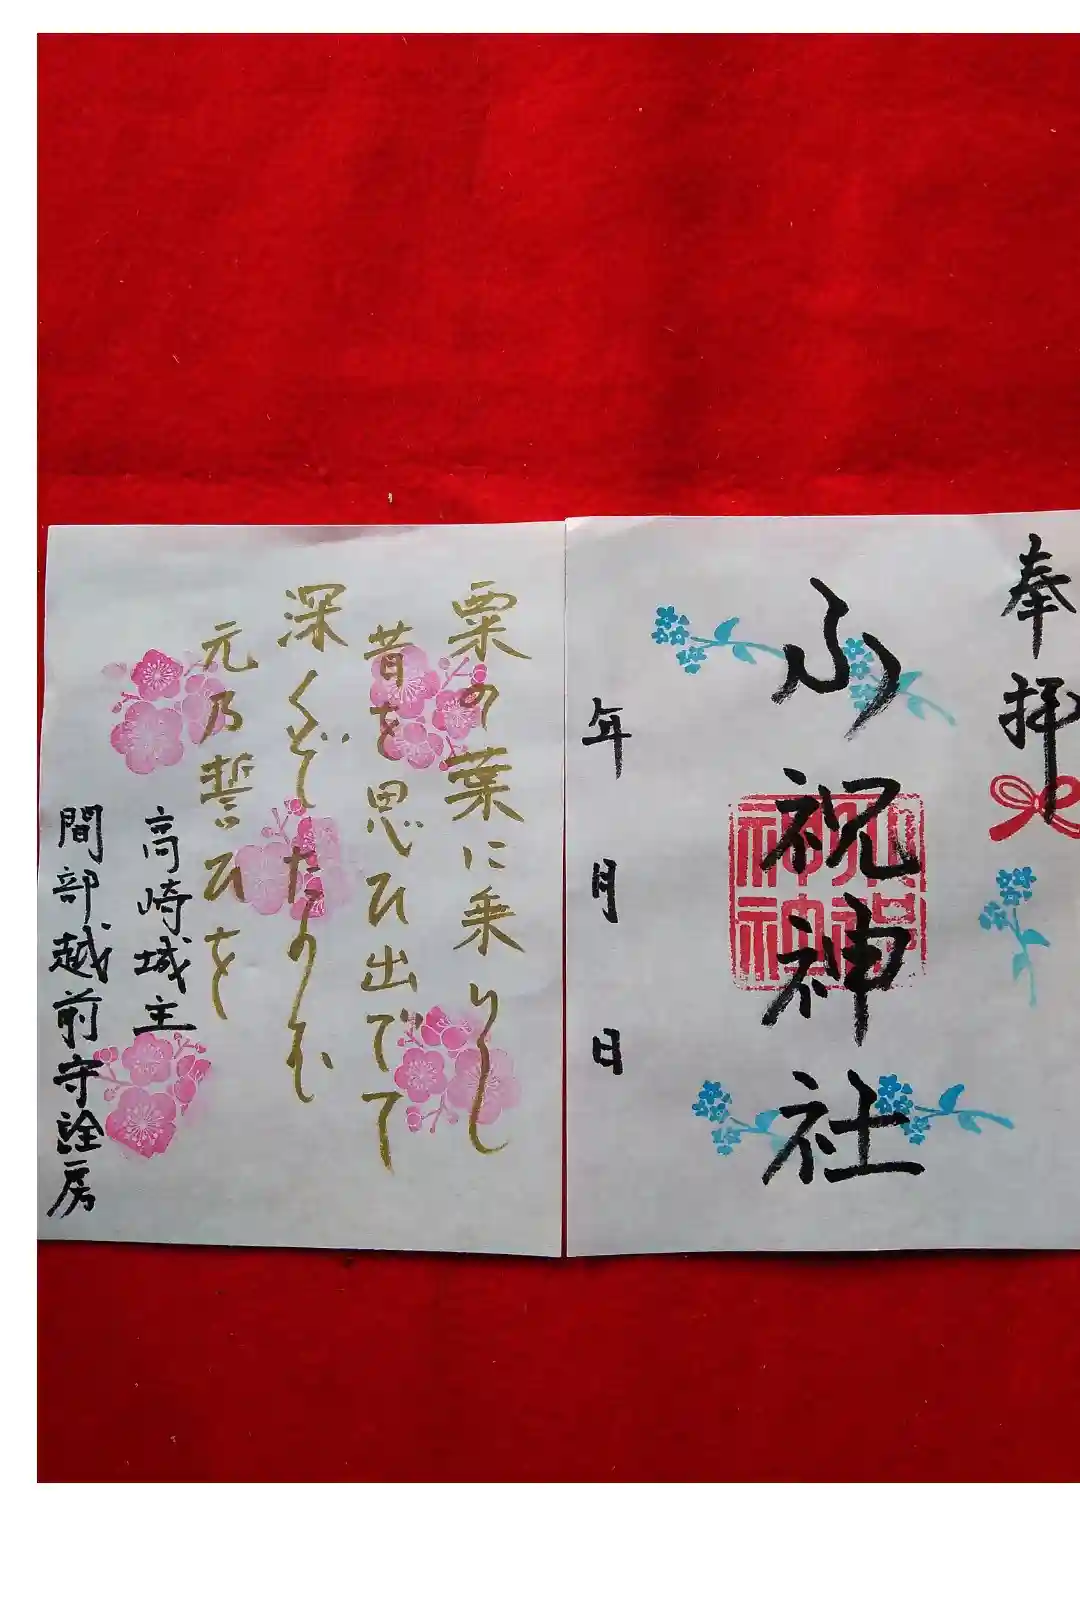 奉拝
小祝神社
年 月 日
粟の葉に乗りし
昔を思ひ出でて
深くぞたのむ
元乃誓ひを
高崎城主
間部越前守詮房